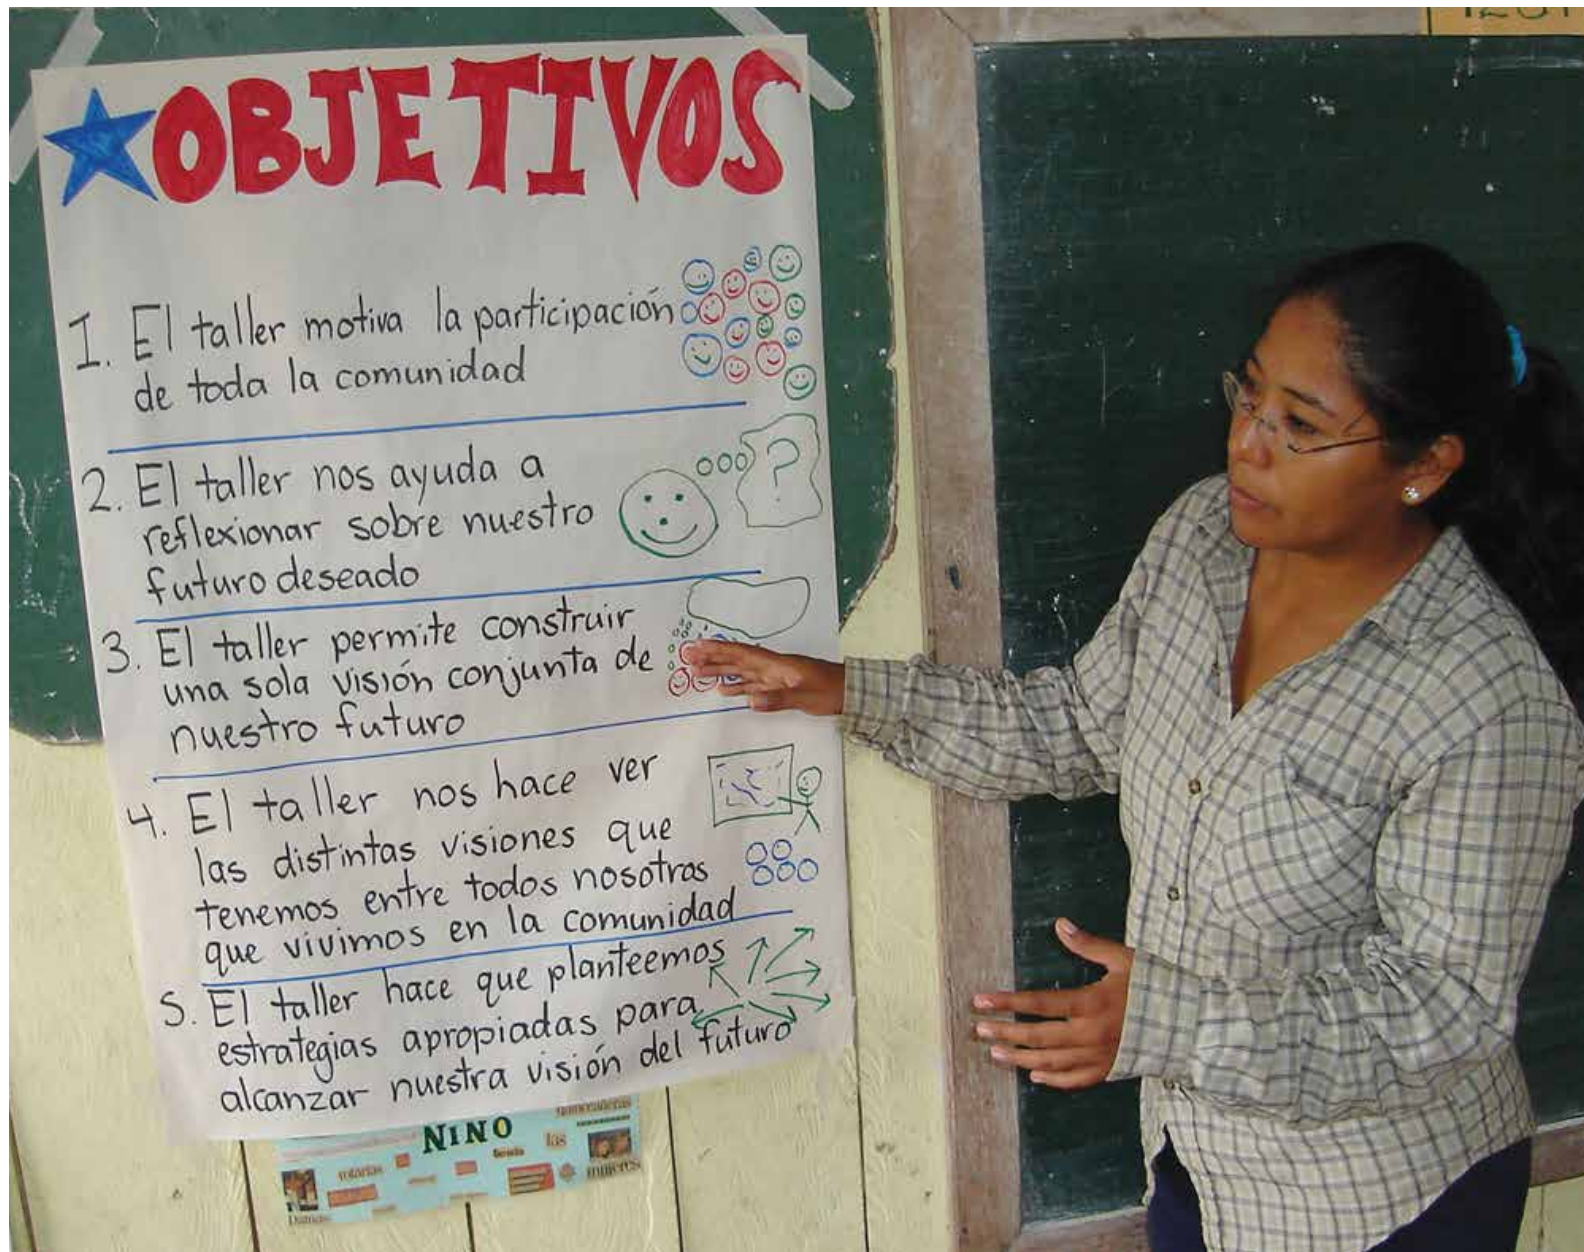 OBJETIVOS
1. El taller motiva la participación
de toda la comunidad
2. El taller nos ayuda a
reflexionar sobre nuestro
futuro deseado
?
3. El taller permite construir
una sola visión conjunta de
nuestro futuro
4. El taller nos hace ver
las distintas visiones que
tenemos entre todos nosotros
que vivimos en la comunidad
5. El taller hace que planteemos
estrategias apropiadas para
alcanzar nuestra visión del futuro
NINO
las
mujeres